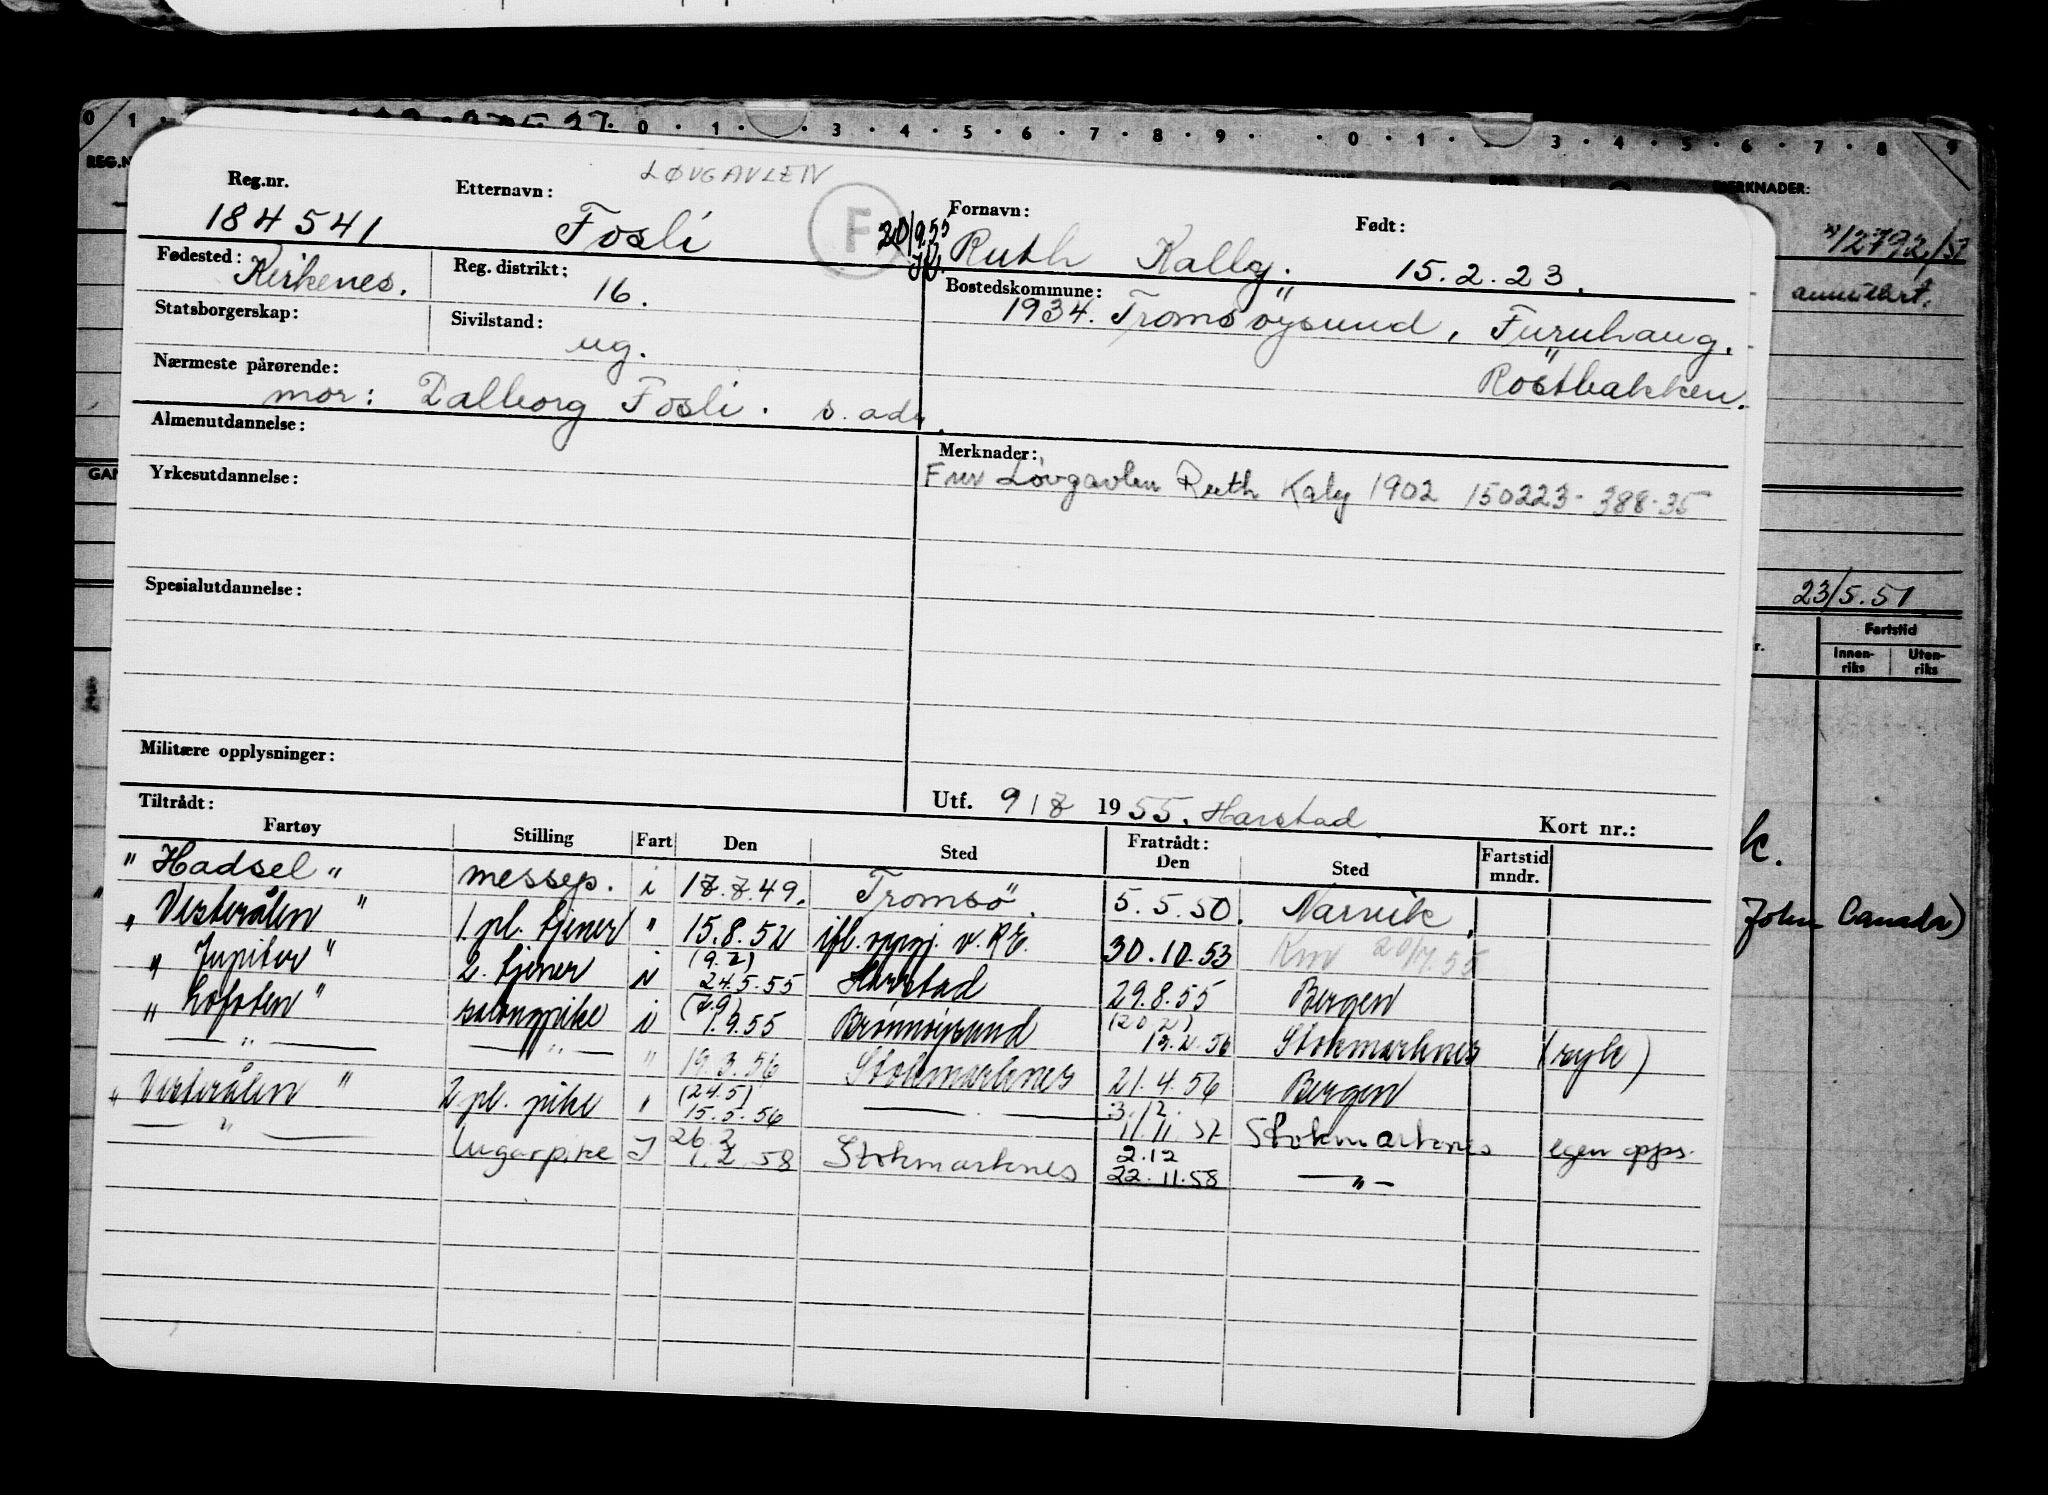 0 1 0 . 1 . 3 . 4 . 5 . 6 . 7 . 8 . 9 . 0 . 1 . 3 . 4 . 5 . 6 . 7 . 8 9
MERKNADER:
LØVGAVLEN
Reg.nr. Etternavn: Fornavn: Født:
184541 Fosli F 20/9.55 Ruth Kally. 15.2.23.
Fødested: Kirkenes. Reg. distrikt: 16. Bostedskommune:
1934. Tromsøysund, Furuhaug,
Statsborgerskap: Sivilstand: ug.
Röstbakken.
Nærmeste pårørende:
mor: Dalborg Fosli. s. adr.
Almenutdannelse:
Merknader:
Fru Løvgavlen Ruth Kaly 1902 150223-388-35
Yrkesutdannelse:
Spesialutdannelse:
23/5.51
Fartstid
Innenriks Utenriks
Militære opplysninger:
Utf. 9/7 1955. Harstad Kort nr.:
Tiltrådt:
Fartøy Stilling Fart Den Sted Fratrådt: Den Sted Fartstid mndr.
"Hadsel" messep. i 17.7.49. Tromsö. 5.5.50. Narvik.
"Vesterålen" 1. pl. tjener " 15.8.52 ifl. oppg. v. R.E. 30.10.53 Km 20/7.55
"Jupiter" 2. tjener i (9.7) 24.5.55 Harstad 29.8.55 Bergen
"Lofoten" salongpike i (7.9) 1.9.55 Brønnøysund (20.2) 13.2.56 Stokmarknes (syk)
— " — — " — " 19.3.56 Stokmarknes 21.4.56 Bergen
"Vesterålen" 2 pl. pike " (24.5) 15.5.56 — 3.12. 11.11.57 Stokmarknes egen opps.
— " — lugarpike I 26.2 1.2.58 Stokmarknes 2.12 22.11.58 — " —
John Canada)